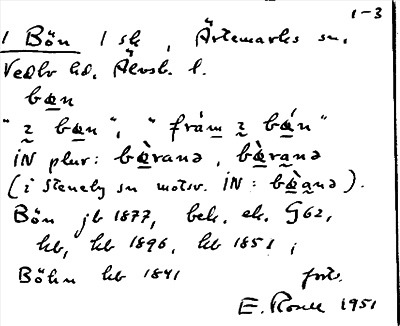 1-3
1 Bön 1 sk, Ärtemarks sn.
Vedbo hd. Älvsb. l.
bœn
"i bœn", "fràm i bœ́n"
IN plur: bœ̀ranə, bœ̀ranə
(i Steneby sn motsv. IN: bœ̀anə).
Bön jb 1877, bek. ek. G62,
kb, kb 1896, kb 1851,
Böhn kb 1841 forts.
E. Rosell 1951